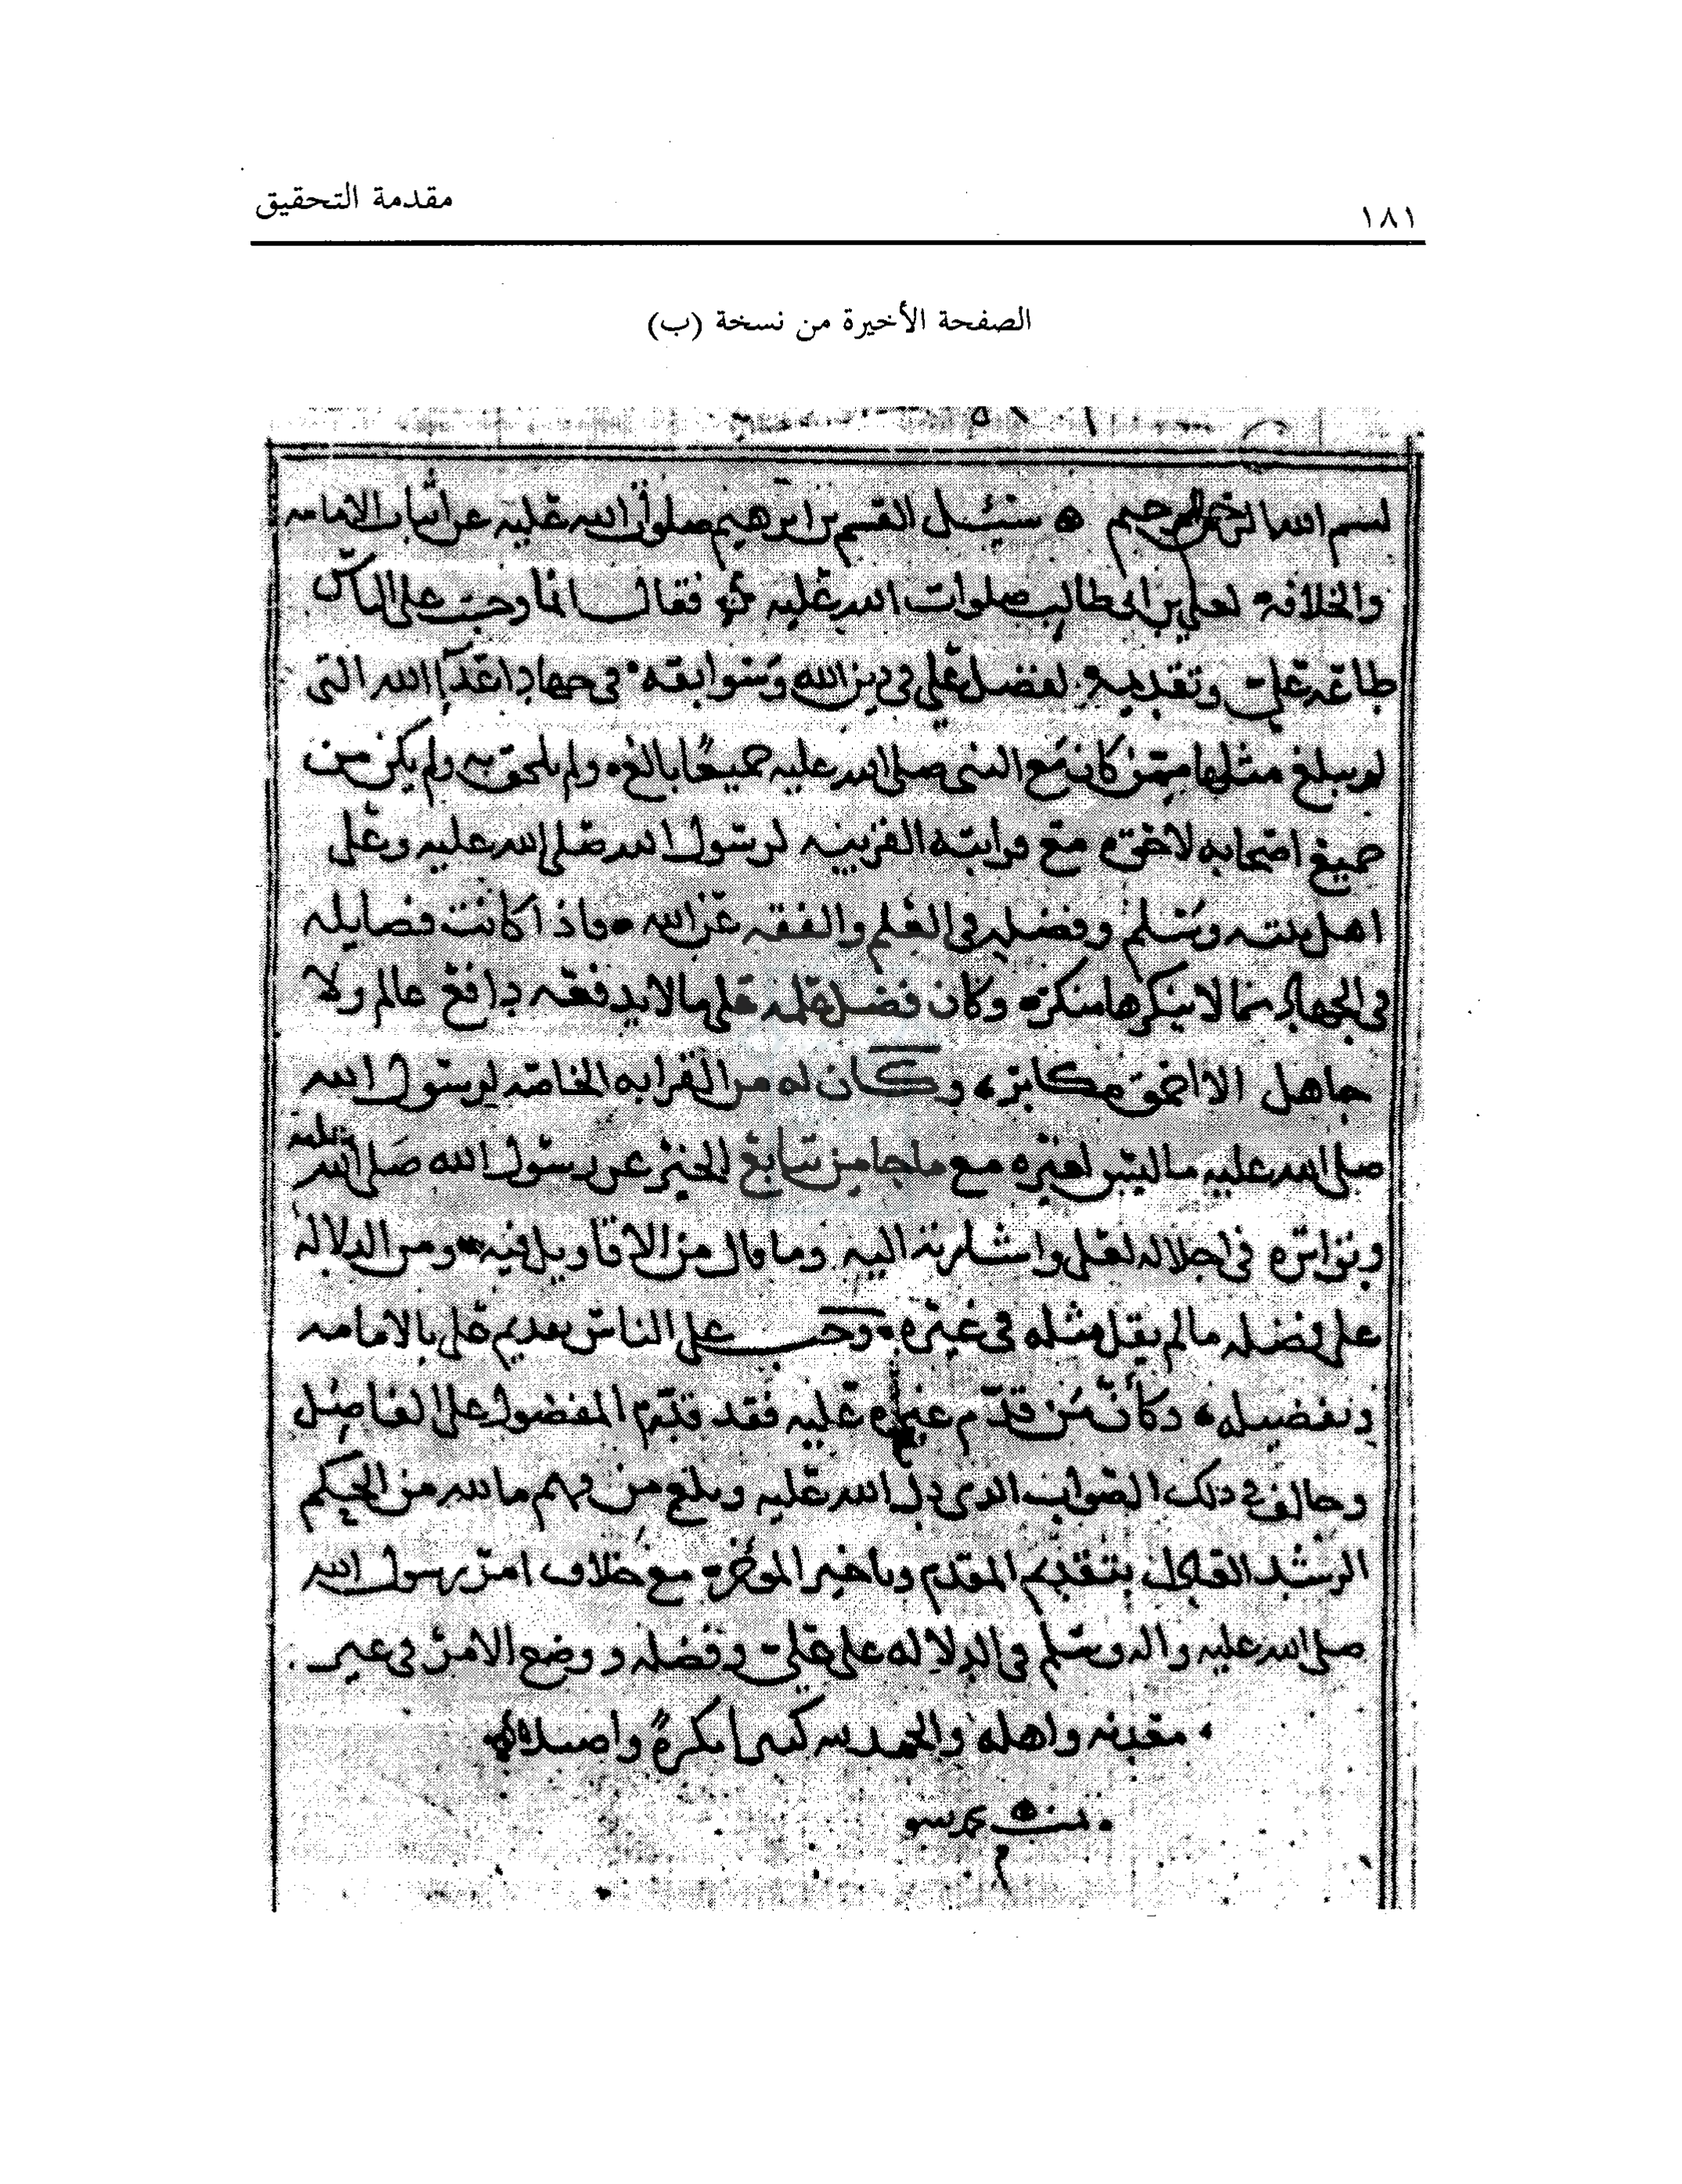 مقدمة التحقيق
١٨١
الصفحة الأخيرة من نسخة (ب)
بسم الله الرحمن الرحيم سئل القسم بن ابرهيم صلوات الله عليه عن اثبات الامامه
والخلافه لعلي بن ابي طالب صلوات الله عليه فقال انما وجبت على الناس
طاعة علي وتقديمه لفضل علي في دين الله وسوابقه في جهاد اعدآ الله التي
لم يبلغ مثلها ممن كان مع النبي صلى الله عليه جميعا بالغ ولم يلحق به ولم يكن من
جميع اصحابه لاحق مع قرابته القريبه لرسول الله صلى الله عليه وعلى
اهل بيته وسلم وفضله في العلم والفقه عن الله فاذا كانت فضايله
في الجهاد مما لا ينكرها منكر وكان فضل علمه على ما لا يدفعه دافع عالم ولا
جاهل الا احمق مكابر وكان له من القرابه الخاصه لرسول الله
صلى الله عليه ما ليس لغيره مع ما جا من سايع الخبر عن رسول الله صلى الله عليه
وتواتره في اجلاله لعلي واشارته اليه وما قال من الاقاويل فيه ومن الدلاله
على فضله ما لم يقل مثله في غيره وجب على الناس تقديم علي بالامامه
وتفضيله وكان من قدم غيره عليه فقد قدم المفضول على الفاضل
وخالف في ذلك الصواب الذي دل الله عليه وبلغ من فهم ما لله من الحكم
الرشد القابل بتقديم المقدم وتاخير الموخر مع خلاف امر رسول الله
صلى الله عليه واله وسلم في الدلاله على علي وفضله ووضع الامر في غير
معدنه واهله والحمد لله كثيرا بكرة واصيلا
تمت